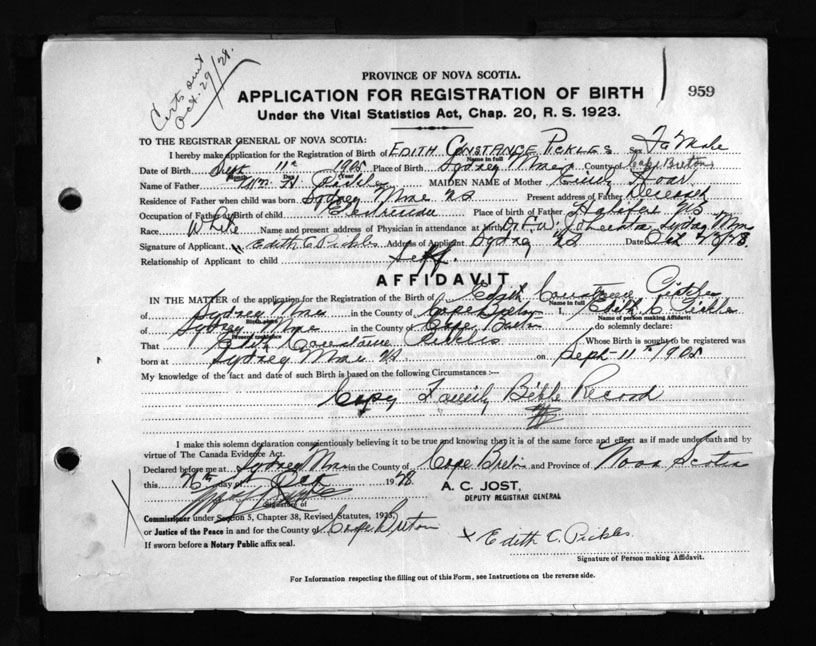 Certs out
Oct. 29/28.
PROVINCE OF NOVA SCOTIA.
APPLICATION FOR REGISTRATION OF BIRTH
959
Under the Vital Statistics Act, Chap. 20, R. S. 1923.
TO THE REGISTRAR GENERAL OF NOVA SCOTIA:
I hereby make application for the Registration of Birth of EDITH CONSTANCE PICKLES Sex Fe Male
Name in full
Date of Birth Sept 11th 1905 Place of Birth Sydney Mines County of Cape Breton
Month Day Year
Name of Father Wm. H. Pickles MAIDEN NAME of Mother Doar
Residence of Father when child was born Sydney Mines NS Present address of Father Deceased
Occupation of Father at Birth of child Place of birth of Father Halifax N.S
Race White Name and present address of Physician in attendance at birth Dr. Sydney Mines
Signature of Applicant Edith C Pickles Address of Applicant Sydney NS Date Oct /28.
Relationship of Applicant to child Self.
AFFIDAVIT
IN THE MATTER of the application for the Registration of the Birth of Edith Constance Pickles
of Sydney Mines in the County of Cape Breton I, Edith C Pickles
Birth place Name of person making Affidavit
of Sydney Mines in the County of Cape Breton do solemnly declare:
Present residence
That Edith Constance Pickles Whose Birth is sought to be registered was
born at Sydney Mines NS on Sept 11th 1905
My knowledge of the fact and date of such Birth is based on the following Circumstances :—
Copy Family Bible Record
I make this solemn declaration conscientiously believing it to be true and knowing that it is of the same force and effect as if made under oath and by
virtue of The Canada Evidence Act.
Declared before me at Sydney Mines in the County of Cape Breton and Province of Nova Scotia
this 26th day of Oct 1928.
A. C. JOST,
DEPUTY REGISTRAR GENERAL
Signature of
Commissioner under Section 5, Chapter 38, Revised Statutes, 1923,
or Justice of the Peace in and for the County of Cape Breton
If sworn before a Notary Public affix seal.
x Edith C. Pickles
Signature of Person making Affidavit.
For Information respecting the filling out of this Form, see Instructions on the reverse side.